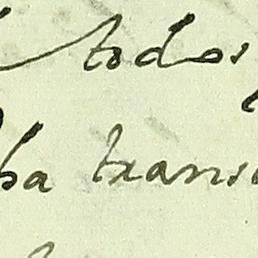 todos
ba trans